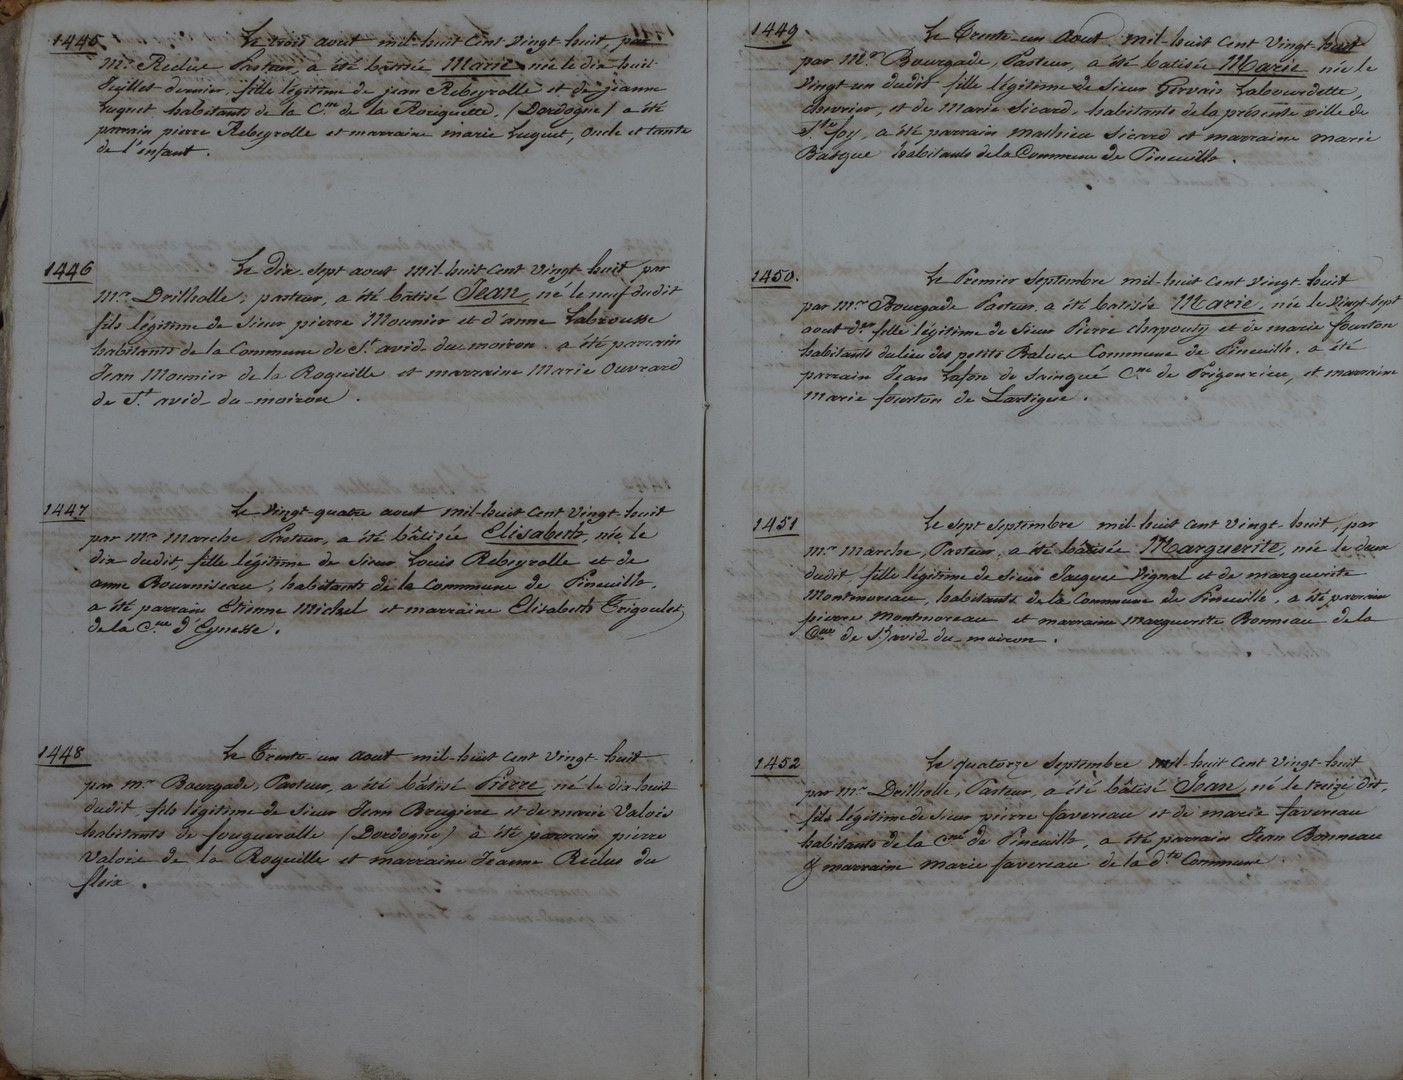 1445 Le trois aout mil-huit Cent vingt-huit, par
Mr. Reclus Pasteur, a été bâtisée Marie née le dix huit
Juillet dernier, fille légitime de jean Rebeyrolle et de jeanne
Luquet habitants de la Cne de la Rouquette, (Dordogne) a été
parrain pierre Rebeyrolle et marraine marie Luquet, Oncle et tante
de l'enfant.
1446 Le Dix-Sept aout Mil-huit Cent vingt-huit par
Mr. Drilholle, pasteur, a été bâtisé Jean, né le neuf dudit
fils légitime de Sieur pierre Mounier et d'anne Labrousse
habitants de la Commune de St. avid-du moiron. a été parrain
Jean Mounier de la Roquille et marraine Marie Ouvrard
de St. avid-du-moiron.
1447 Le Vingt-quatre aout Mil-huit Cent vingt-huit
par mr. Marche, Pasteur, a été bâtisée Elisabeth, née le
dix dudit, fille légitime de Sieur Louis Rebeyrolle et de
anne Bourniseau, habitants de la Commune de Pineuilh.
a été parrain Etienne Michel et marraine Elisabeth Trigoulet
de la Cne d'Eynesse.
1448 Le Trente-un Aout mil-huit Cent vingt-huit
par mr. Bourgade, Pasteur, a été bâtisé Pierre, né le dix huit
dudit, fils légitime de Sieur Jean Brugiere et de marie Valois
habitants de fougueyrolle (Dordogne) a été parrain pierre
Valois de la Roquille et marraine Jeanne Reclus du
fleix.
1449 Le Trente-un Aout mil-huit Cent vingt-huit
par Mr. Bourgade, Pasteur, a été batisée Marie née le
Vingt un dudit fille légitime de Sieur Gervais Labourdette,
ouvrier, et de Marie Sicard, habitants de la présente ville de
Ste foy, a été parrain mathieu Sicard et marraine marie
Basque habitants de la Commune de Pineuilh.
1450. Le Premier Septembre mil-huit Cent vingt huit
par mr. Bourgade Pasteur, a été batisée Marie, née le vingt sept
aout der fille légitime de Sieur Pierre Chapoudy et de marie fourton
habitants du lieu des petits Balues Commune de Pineuilh. a été
parrain Jean Lafon de Cne de Prigonrieu, et marraine
marie fourton de Lartigue.
1451 Le Sept Septembre mil-huit Cent vingt-huit, par
mr. marche, Pasteur, a été bâtisée Marguerite, née le deux
dudit, fille légitime de Sieur Jacques Vignal et de marguerite
Montmoreau, habitants de la Commune de Pineuilh, a été parrain
pierre Montmoreau et marraine marguerite Bonneau de la
Cne de St. avid-du moiron.
1452 Le quatorze Septembre mil-huit Cent vingt-huit
par mr. Drilholle, Pasteur, a été bâtisé Jean, né le treize dit,
fils légitime de Sieur pierre favereau et de marie favereau
habitants de la Cne de Pineuilh, a été parrain Jean Bonneau
& marraine marie favereau de la dte Commune.